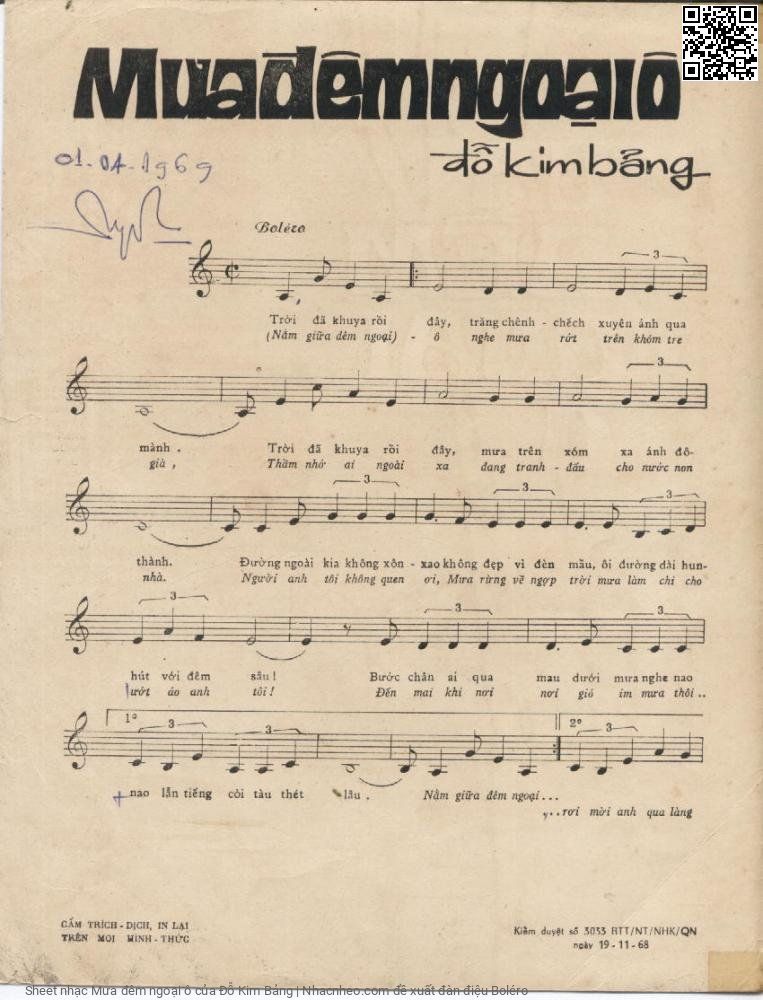 Mưa đêm ngoại ô
đỗ kim bảng
01-04-1969
Boléro
3
Trời đã khuya rồi đây, trăng chênh - chếch xuyên ánh qua
(Nằm giữa đêm ngoại) - ô nghe mưa rứt trên khóm tre
3
mành . Trời đã khuya rồi đây, mưa trên xóm xa ánh đô-
già , Thầm nhớ ai ngoài xa đang tranh - đấu cho nước non
3 3 3
thành. Đường ngoài kia không xôn - xao không đẹp vì đèn mầu, ôi đường dài hun-
nhà. Người anh tôi không quen ơi, Mưa rừng về ngợp trời mưa làm chi cho
3 3 3
hút với đêm sâu ! Bước chân ai qua mau dưới mưa nghe nao
ướt áo anh tôi ! Đến mai khi nơi nơi gió im mưa thôi ..
1º 3 3 2º 3
nao lẫn tiếng còi tàu thét lâu . Nằm giữa đêm ngoại...
...rơi mời anh qua làng
CẤM TRÍCH - DỊCH, IN LẠI
TRÊN MỌI HÌNH - THỨC
Kiểm duyệt số 3053 BTT/NT/NHK/QN
ngày 19 - 11 - 68
Sheet nhạc Mưa đêm ngoại ô của Đỗ Kim Bảng | Nhacnheo.com đề xuất đàn điệu Boléro